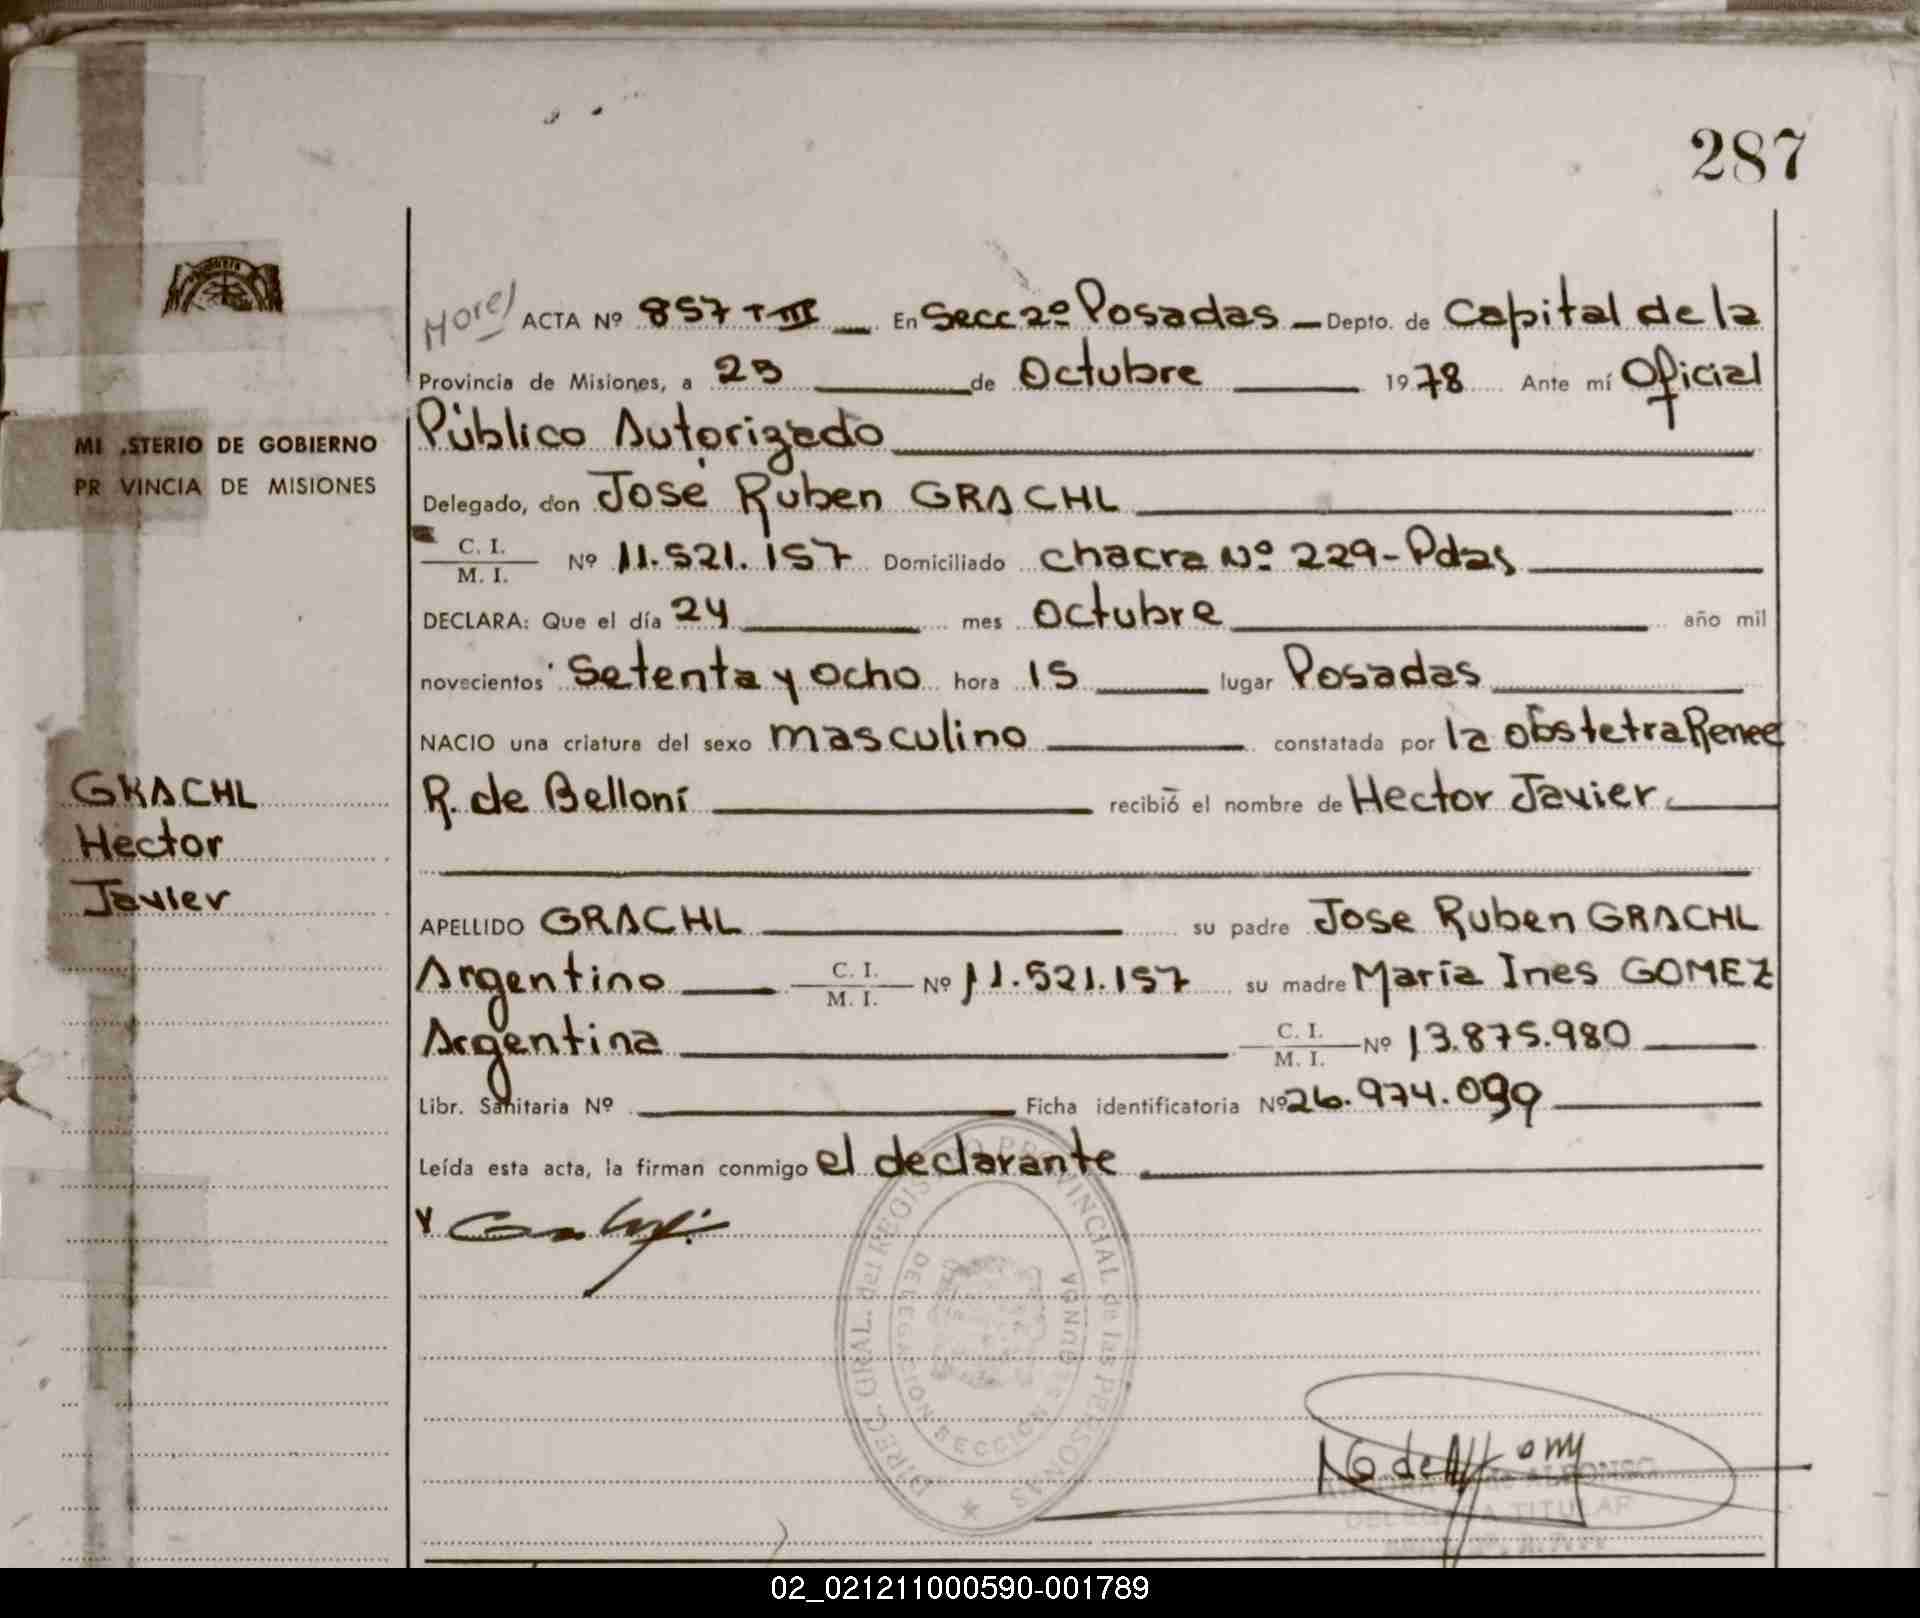 287
Horel ACTA Nº 857 T III En Secc 2º Posadas Depto. de Capital de la
Provincia de Misiones, a 25 de Octubre 1978 Ante mí Oficial
Público Autorizado
MI STERIO DE GOBIERNO
PR VINCIA DE MISIONES
Delegado, don José Ruben GRACHL
C. I.
M. I. Nº 11.521.157 Domiciliado chacra Nº 229-Pdas
DECLARA: Que el día 24 mes octubre año mil
novecientos Setenta y ocho hora 15 lugar Posadas
NACIO una criatura del sexo masculino constatada por la obstetra Renee
R. de Belloni recibió el nombre de Hector Javier
GRACHL
Hector
Javier
APELLIDO GRACHL su padre Jose Ruben GRACHL
Argentino C. I. M. I. Nº 11.521.157 su madre María Ines GOMEZ
Argentina C. I. M. I. Nº 13.875.980
Libr. Sanitaria Nº Ficha identificatoria Nº 26.974.099
Leída esta acta, la firman conmigo el declarante
DIREC. GRAL. del REGISTRO PROVINCIAL de las PERSONAS
DELEGACION SECCION SEGUNDA
de ALFONSO
DELEGADA TITULAR
02_021211000590-001789